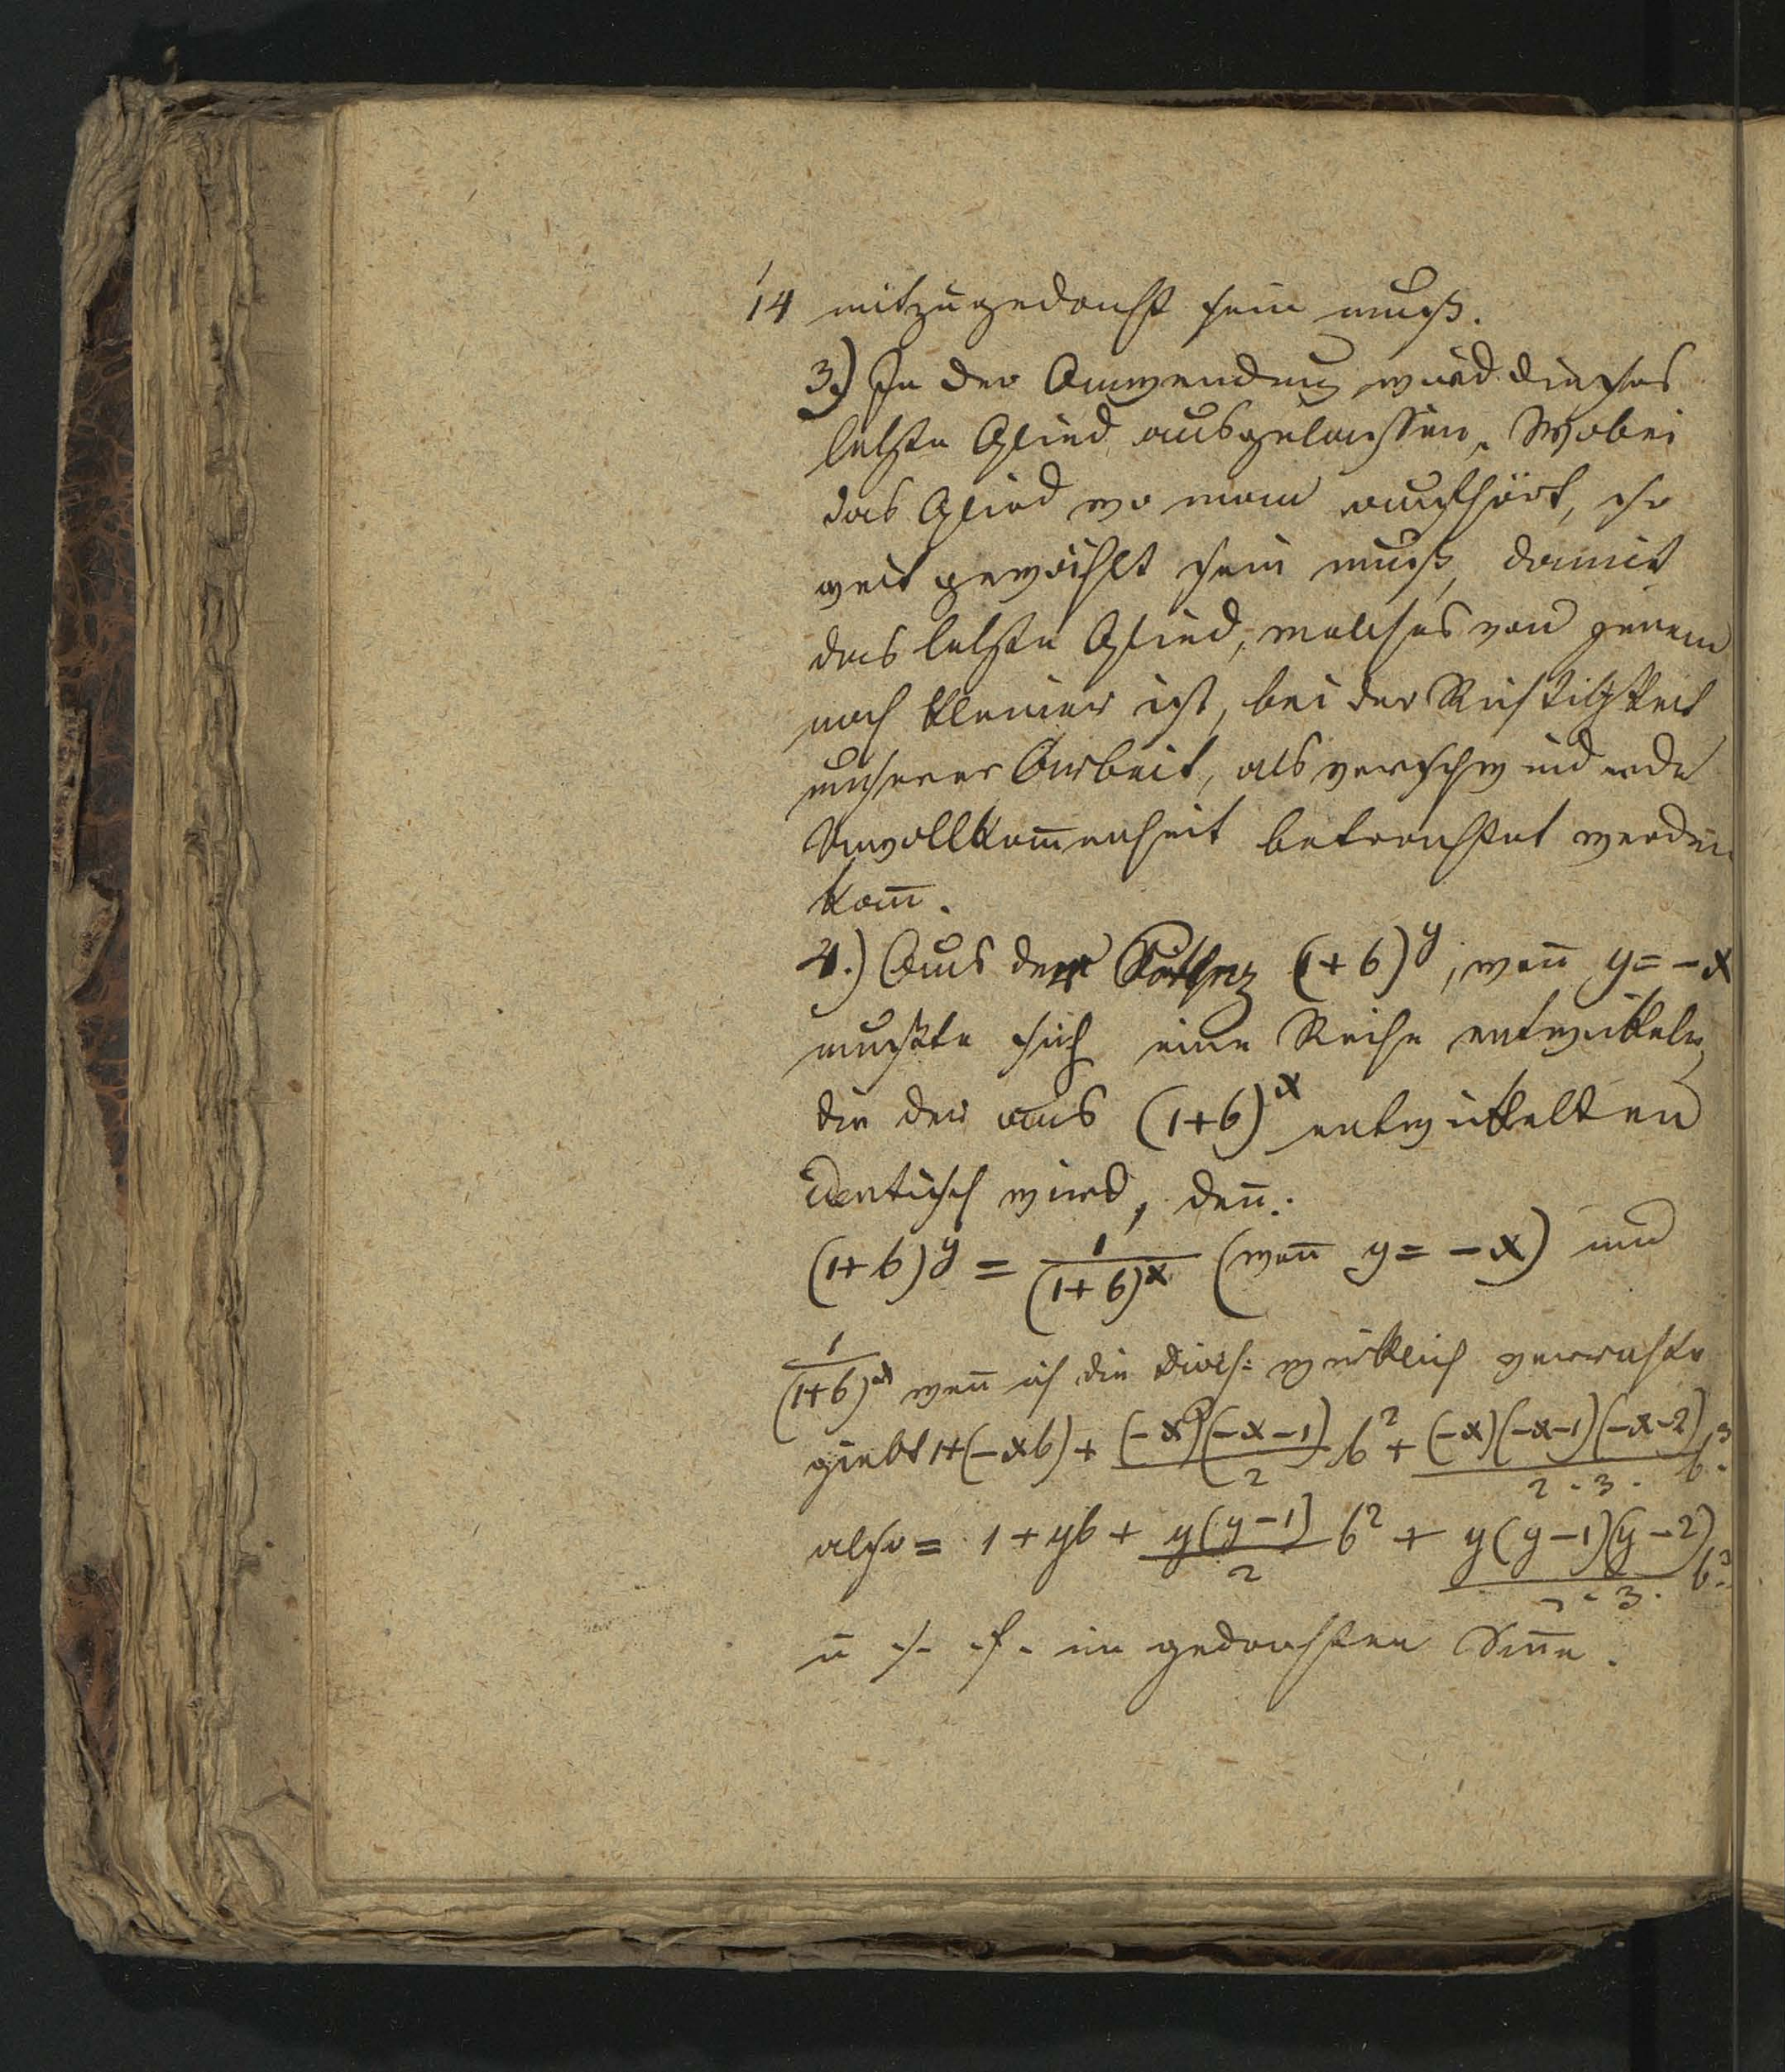 14 mitzugedacht sein muß.
3.) In der Anwendung wird dieses
letzte Glied ausgelassen. Wobei
das Glied wo man aufhört, so
weit gewählt sein muß, damit
das letzte Glied, welches von jenem
noch kleiner ist, bei der Richtigkeit
unserer Arbeit, als verschwindende
Unvollkom̅enheit betrachtet werden
kan̅.
4.) Aus der (1+b)^y, wen̅ y = -x
mußte sich eine Reihe entwickeln,
die der aus (1+b)^x entwickelten
identisch wird, den̅:
(1+b)^y = 1/(1+b)^x (wen̅ y = -x) und
1/(1+b)^x wen̅ ich die Divis: wirklich verrichte
giebt 1+(-xb) + (-x)(-x-1)/2 b² + (-x)(-x-1)(-x-2)/2·3· b³
also = 1 + yb + y(y-1)/2 b² + y(y-1)(y-2)/2·3· b³
u. s. f. im gedachten Sin̅e.